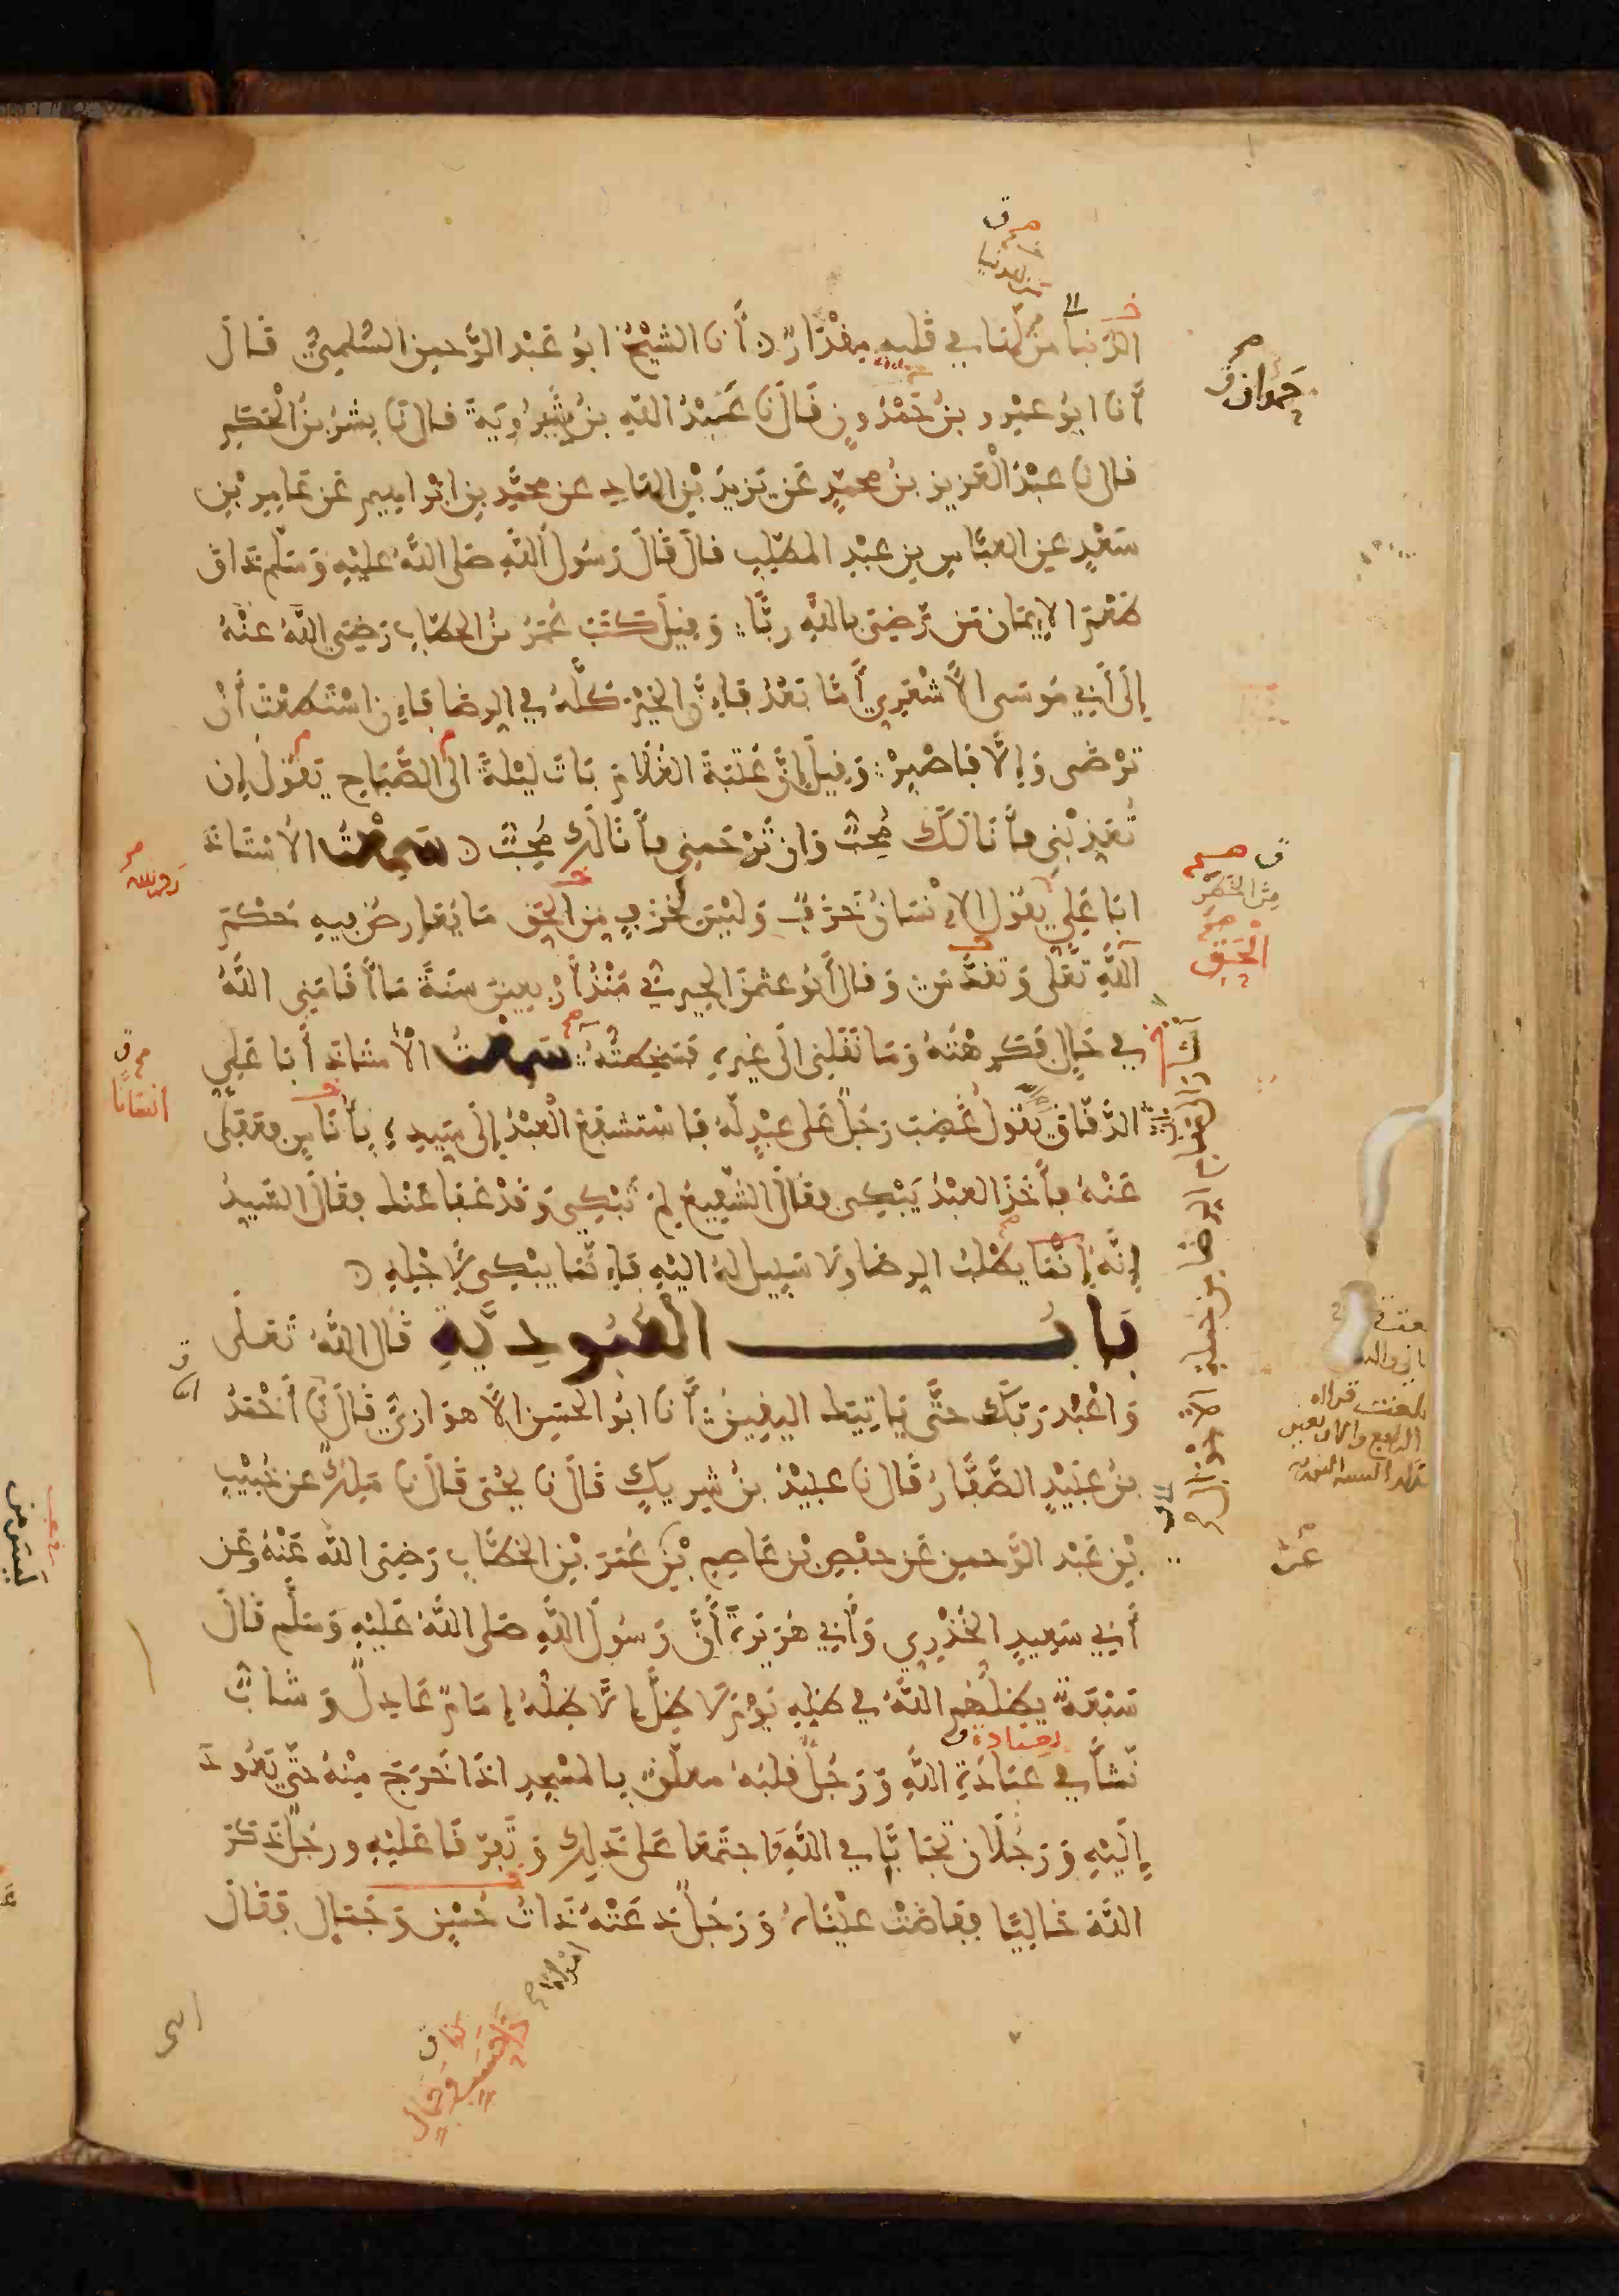 الدنيا من لها في قلبه مِقْدَارٌ أَنا الشَّيْخُ ابُو عَبْد الرَّحمن السُّلمِيُّ قَالَ
أَنَا ابُو عمْرو بنُ حَمْدُونٍ قَالَ نَا عَبْدُ اللهِ بنُ شِيرُوِيَةَ قال نَا بِشْرُ بنُ الْحَكَمِ
قال نَا عبْدُ الْعَزِيزِ بنُ محمَّدٍ عَن يَزِيدَ بْنِ الهَادِ عن محمَّدِ بنِ ابْرَاهِيمَ عَن عَامِرِ بْنِ
سَعْدٍ عنِ العبَّاسِ بنِ عبْدِ المطَّلِبِ قالَ قَالَ رَسُولُ اللَّهِ صَلى اللَّهُ عليْهِ وَسَلَّم ذَاقَ
طَعْمَ الإيمَان مَن رَّضِيَ باللَّهِ ربًّا وَقِيلَ كَتَبَ عُمَرُ بنُ الخطّابِ رَضِيَ اللَّهُ عنْهُ
إلَى أَبِي مُوسَى الأَشْعَرِيِّ أَمَّا بَعْدُ فَإِنَّ الخَيْرَ كُلَّهُ في الرِضَا فَإنِ اسْتَطَعْتَ أَنْ
تَرْضَى وَإلَّا فَاصْبِرْ وَقِيلَ إنَّ عُتْبَةَ الغُلَامَ بَاتَ لَيْلةً الَى الصَّبَاحِ يَقُولُ إن
تُعَذِّبْنِي فأَنَا لَكَ مُحِبٌّ وَان تَرْحَمنِي فأَنَا لَكَ مُحِبٌّ سَمِعْتُ الأسْتَاذَ
ابَا عَلِي يقُولُ الإنْسَانُ خَزَفٌ وَليْسَ لِلخَزَفِ مِنَ الخَطَرِ مَا يُعَارِضُ فِيهِ حُكْمَ
اللَّهِ تَعَلَى وَتَقَدَّسَ وَقال أَبُو عثمنَ الحِيرِيُّ مُنْذُ أَرْبعِينَ سَنَةً مَا أَقَامَنِي اللَّهُ
في حَالٍ فَكَرِهْتُهُ وَمَا نَقَلنِي الَى غيْرِهِ فَسَخِطتُّهُ سَمِعْتُ الأسْتَاذَ أَبَا عَلِي
الدَّقَّاقَ يَقُولُ غَضِبَ رَجُلٌ عَلى عبْدٍ لَّهُ فَاسْتشْفَعَ الْعَبْدُ إلَى سَيِّدِهِ بِأُنَاسٍ فعَفَى
عَنْهُ فأَخَذَ العَبْدُ يَبْكِي فقالَ الشَّفِيعُ لِمَ تَبْكِي وَقَدْ عَفَا عَنْكَ فقالَ السَّيِّدُ
إنَّهُ إنَّمَا يَطْلُبُ الرِضَا وَلا سَبِيلَ لهُ اليْهِ فَإنَّمَا يبْكِي لأَجْلِهِ
بَابُ العُبُودِيَّةِ قَالَ اللَّهُ تَعَلَى
وَاعْبُدْ رَبَّكَ حتَّى يَاتِيَكَ اليَقِينُ أَنَا ابُو الحَسَنِ الأَهوَازِيُّ قَالَ نَا أَحْمَدُ
بنُ عُبَيْدٍ الصَّفَّارُ قَالَ نَا عبَيْدُ بنُ شَرِيكٍ قَالَ نَا يَحْيَى قَالَ نَا مَلِكٌ عن خُبَيْبِ
بْنِ عَبْدِ الرَّحمنِ عَن حفْصِ بْنِ عَاصِمِ بْنِ عُمَرَ بْنِ الخَطَّابِ رَضِيَ اللَّهُ عَنْهُ عَن
أَبِي سَعِيدٍ الخُدْرِي وَأَبِي هُرَيْرَةَ أَنَّ رَسُولَ اللَّهِ صَلى اللَّهُ عَلَيْهِ وَسَلَّم قَالَ
سَبْعَةٌ يُظِلُّهُمُ اللَّهُ في ظِلِّهِ يَوْمَ لَا ظِلَّ إلَّا ظِلُّهُ إمَامٌ عَادِلٌ وَشَابٌّ
نَّشَأَ في عبَادَةِ اللَّهِ وَرَجُلٌ قلبُهُ معَلَّقٌ بِالمَسْجِدِ اذَا خَرَجَ مِنْهُ حتَّى يَعُودَ
إلَيْهِ وَرَجُلَانِ تَحَابَّا في اللَّهِ فاجتَمَعَا عَلى ذَلِكَ وَتَفَرَّقَا عَلَيْهِ ورَجُلٌ ذَكَرَ
اللَّهَ خَالِيًا فَفَاضَتْ عَيْنَاهُ وَرَجُلٌ دَعَتْهُ ذَاتُ حُسْنٍ وَجَمَالٍ فَقَالَ